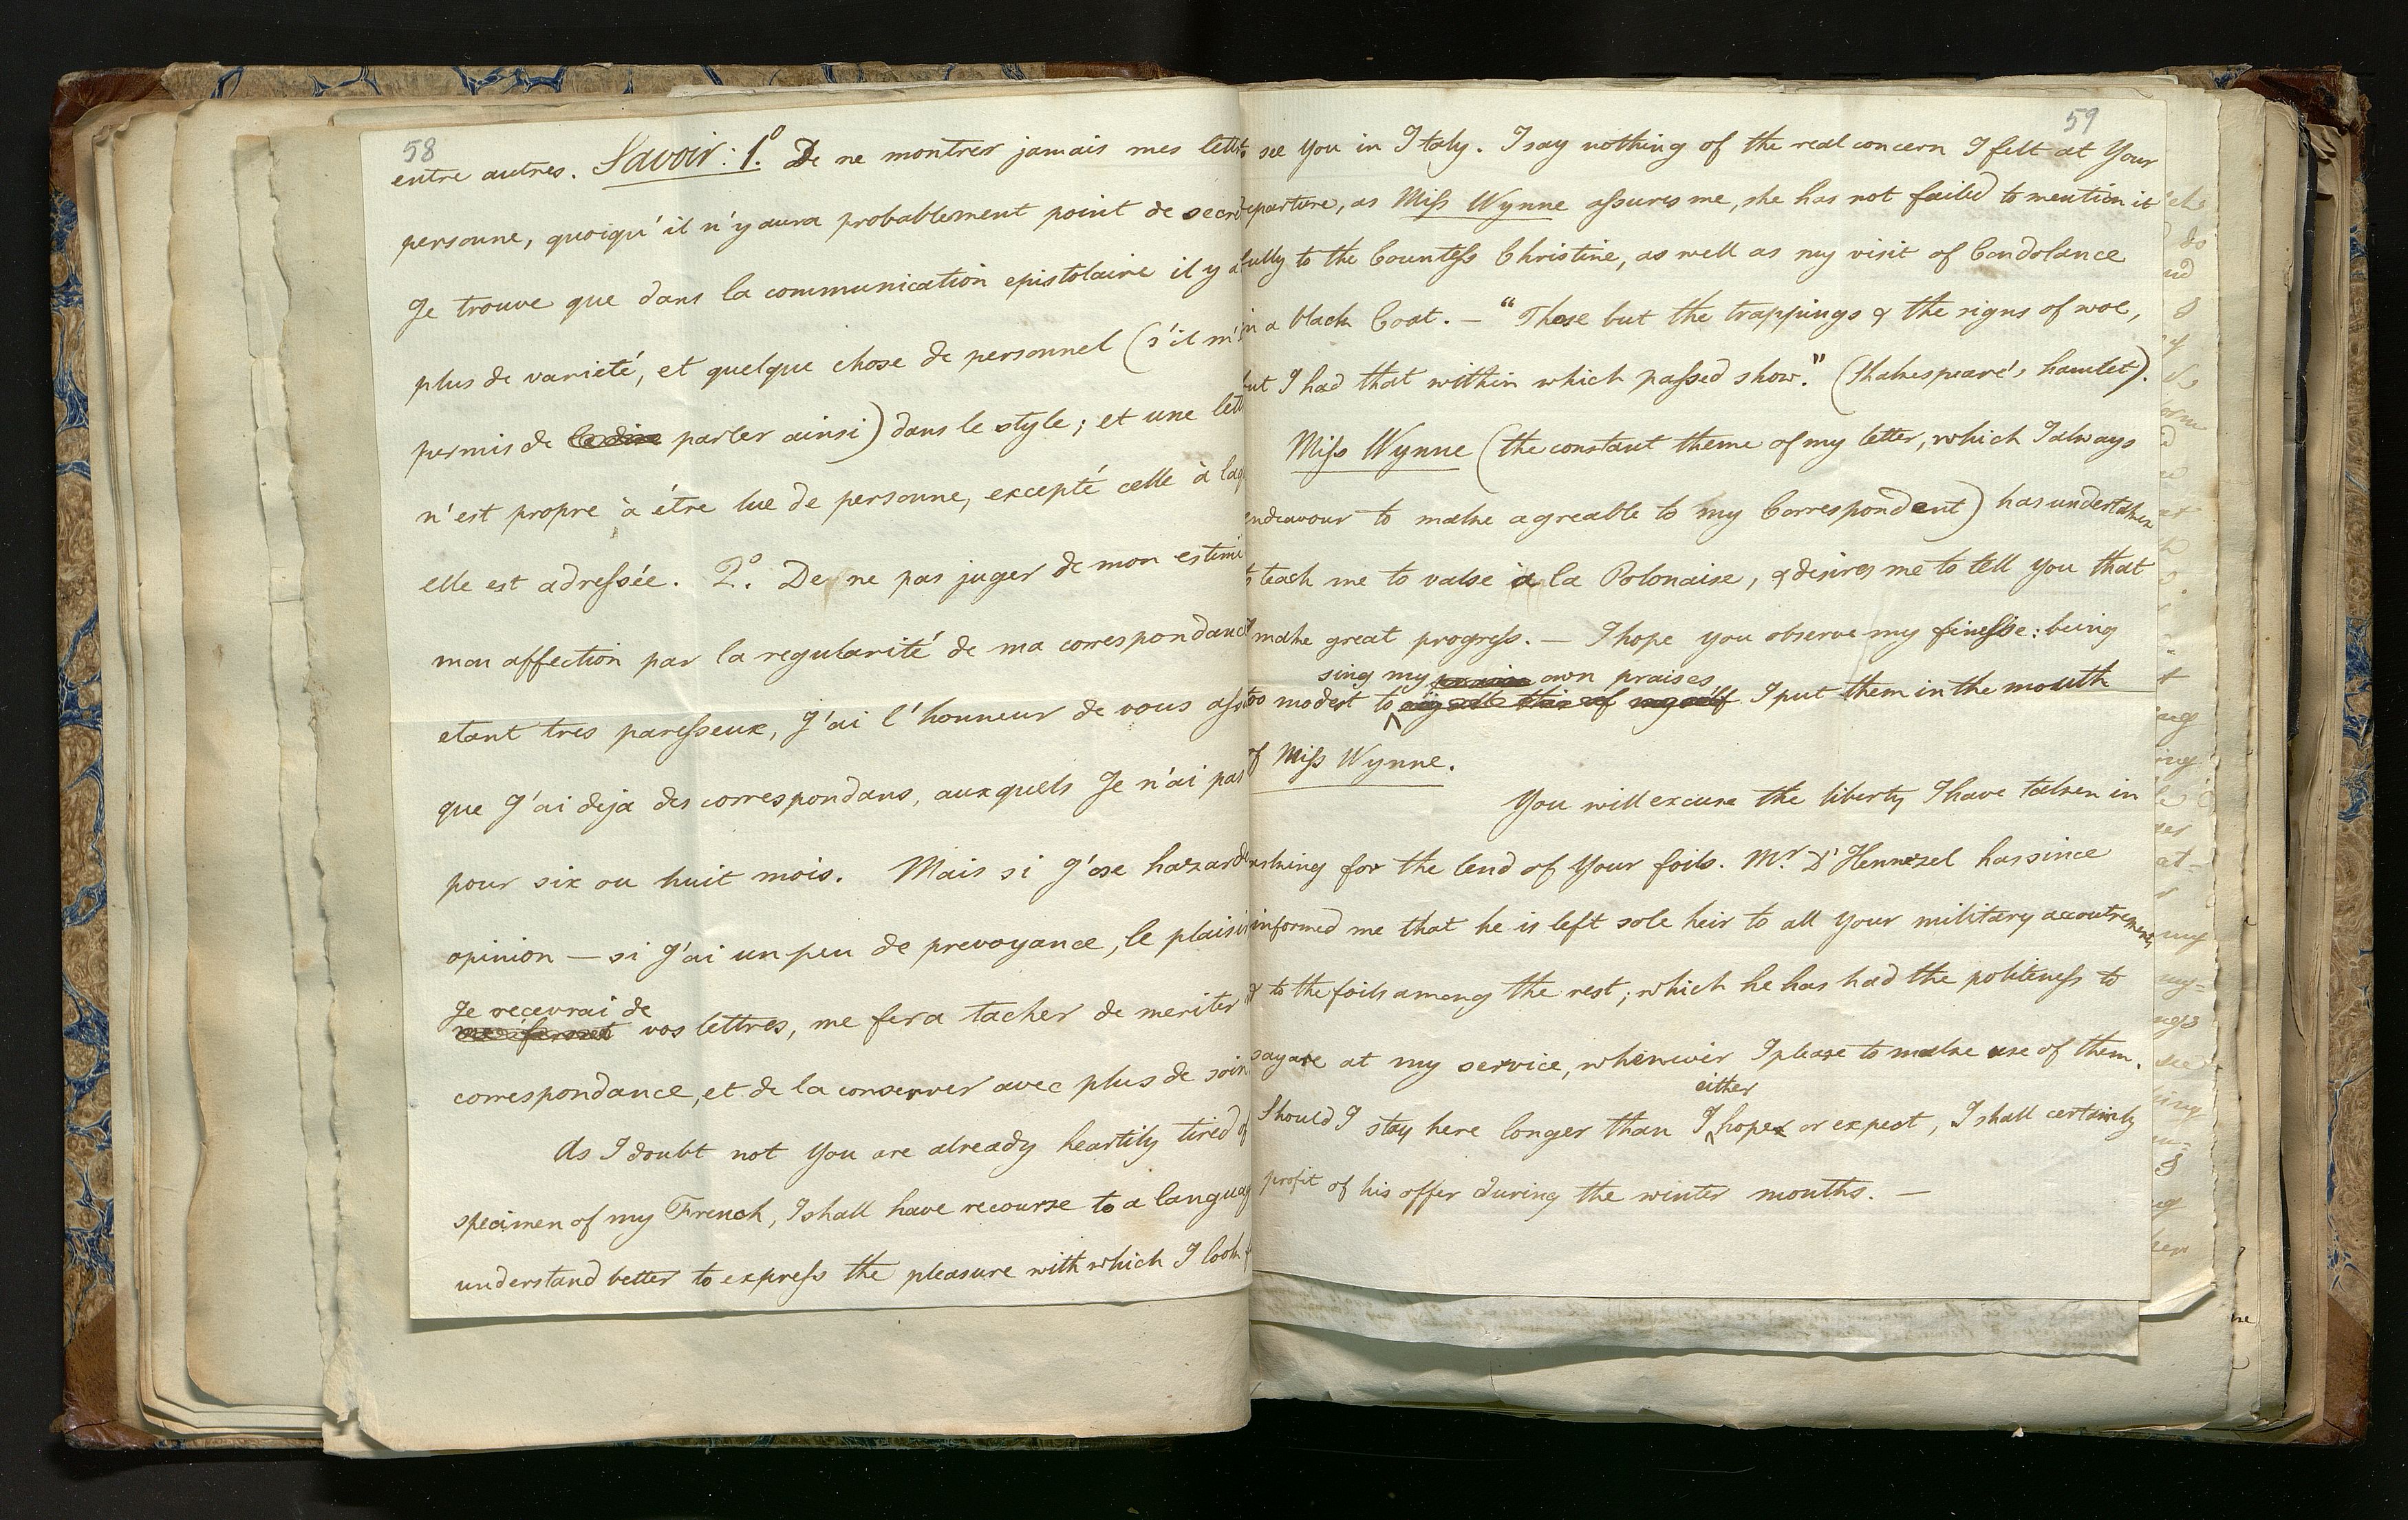 58
entre autres. Savoir: 1.o De ne montrer jamais mes lett
personne, quoiqu'il n'y aura probablement point de secr
Je trouve que dans la communication epistolaire il y a
plus de varieté, et quelque chose de personnel (s'il m'
permis de parler ainsi) dans le style; et une lett
n'est propre à être lue de personne, excepté celle à laq
elle est adressée. 2.o De ne pas juger de mon estime
mon affection par la regularité de ma correspondanc
etant tres paresseux, J'ai l'honneur de vous ass
que J'ai deja des correspondans, auxquels Je n'ai pas
pour six ou huit mois. Mais si J'ose hazard
opinion — si J'ai un peu de prevoyance, le plaisi
Je recevrai de
vos lettres, me fera tacher de meriter
correspondance, et de la conserver avec plus de soin
As I doubt not you are already heartily tired of
specimen of my French, I shall have recourse to a languag
understand better to express the pleasure with which I look
59
see you in Italy. I say nothing of the real concern I felt at Your
eparture, as Miss Wynne assures me, she has not failed to mention it
fully to the Countess Christine, as well as my visit of Condolance
in a black Coat. — "These but the trappings & the signs of woe,
but I had that within which passed show." (Shakespeare's hamlet).
Miss Wynne (the constant theme of my letter, which I always
endeavour to make agreable to my Correspondent) has undertaken
teach me to valse à la Polonaise, & desires me to tell you that
make great progress. — I hope you observe my finesse: being
sing my own praises
too modest to I put them in the mouth
of Miss Wynne.
You will excuse the liberty I have taken in
asking for the lend of Your foils. Mr. D'Hennezel has since
informed me that he is left sole heir to all Your military accoutrements,
& to the foils among the rest; which he has had the politeness to
say are at my service, whenever I please to make use of them.
either
Should I stay here longer than I hope or expect, I shall certainly
profit of his offer during the winter months. —